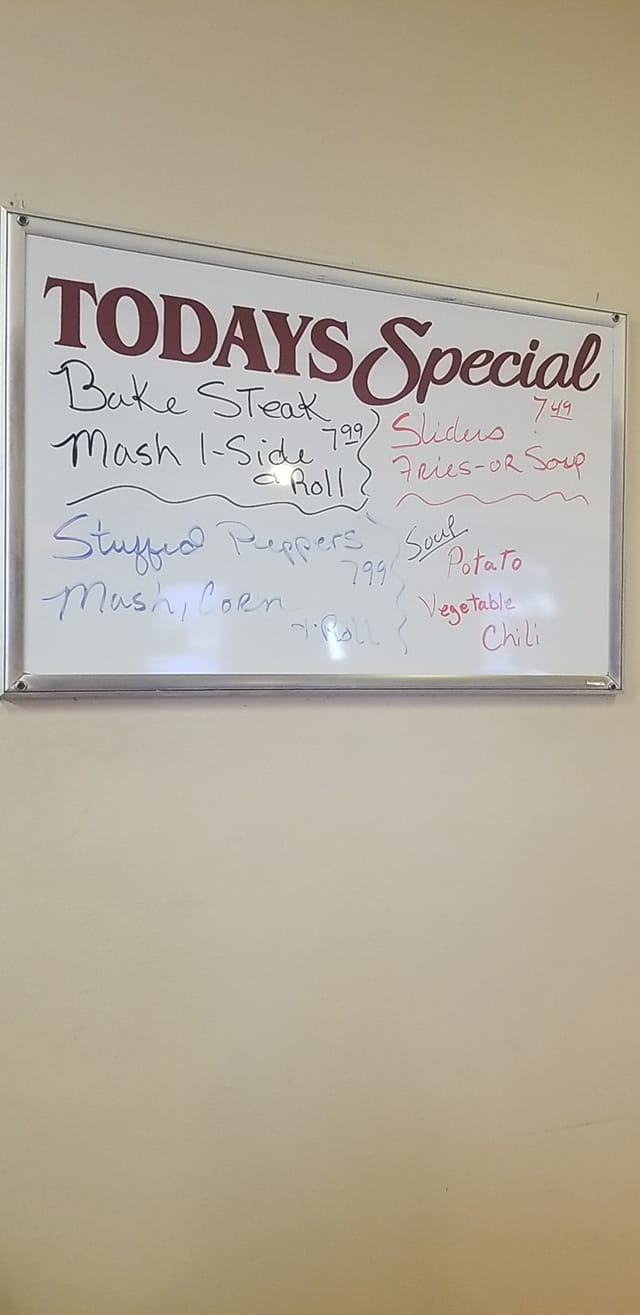 TODAYS Special
Bake Steak
7 99
Mash 1-Side
a Roll
Sliders 7 49
Fries-or Soup
Stuffed Peppers
7 99
Mash, Corn
+ Roll
Soup
Potato
Vegetable
Chili